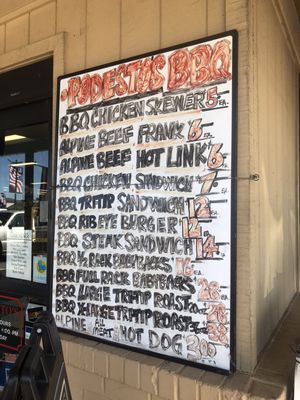 PODESTOS BBQ
BBQ CHICKEN SKEWER 5 EA.
ALPINE BEEF FRANK 6 EA.
ALPINE BEEF HOT LINK 6 EA.
BBQ CHICKEN SANDWICH 7 EA
BBQ TRITIP SANDWICH 12 EA
BBQ RIB EYE BURGER 12 EA
BBQ STEAK SANDWICH 14
BBQ ½ RACK BABYBACKS
BBQ FULL RACK BABYBACKS 28
BBQ LARGE TRITIP ROAST
BBQ X-LARGE TRITIP ROAST
ALPINE ALL MEAT HOT DOG 3.00